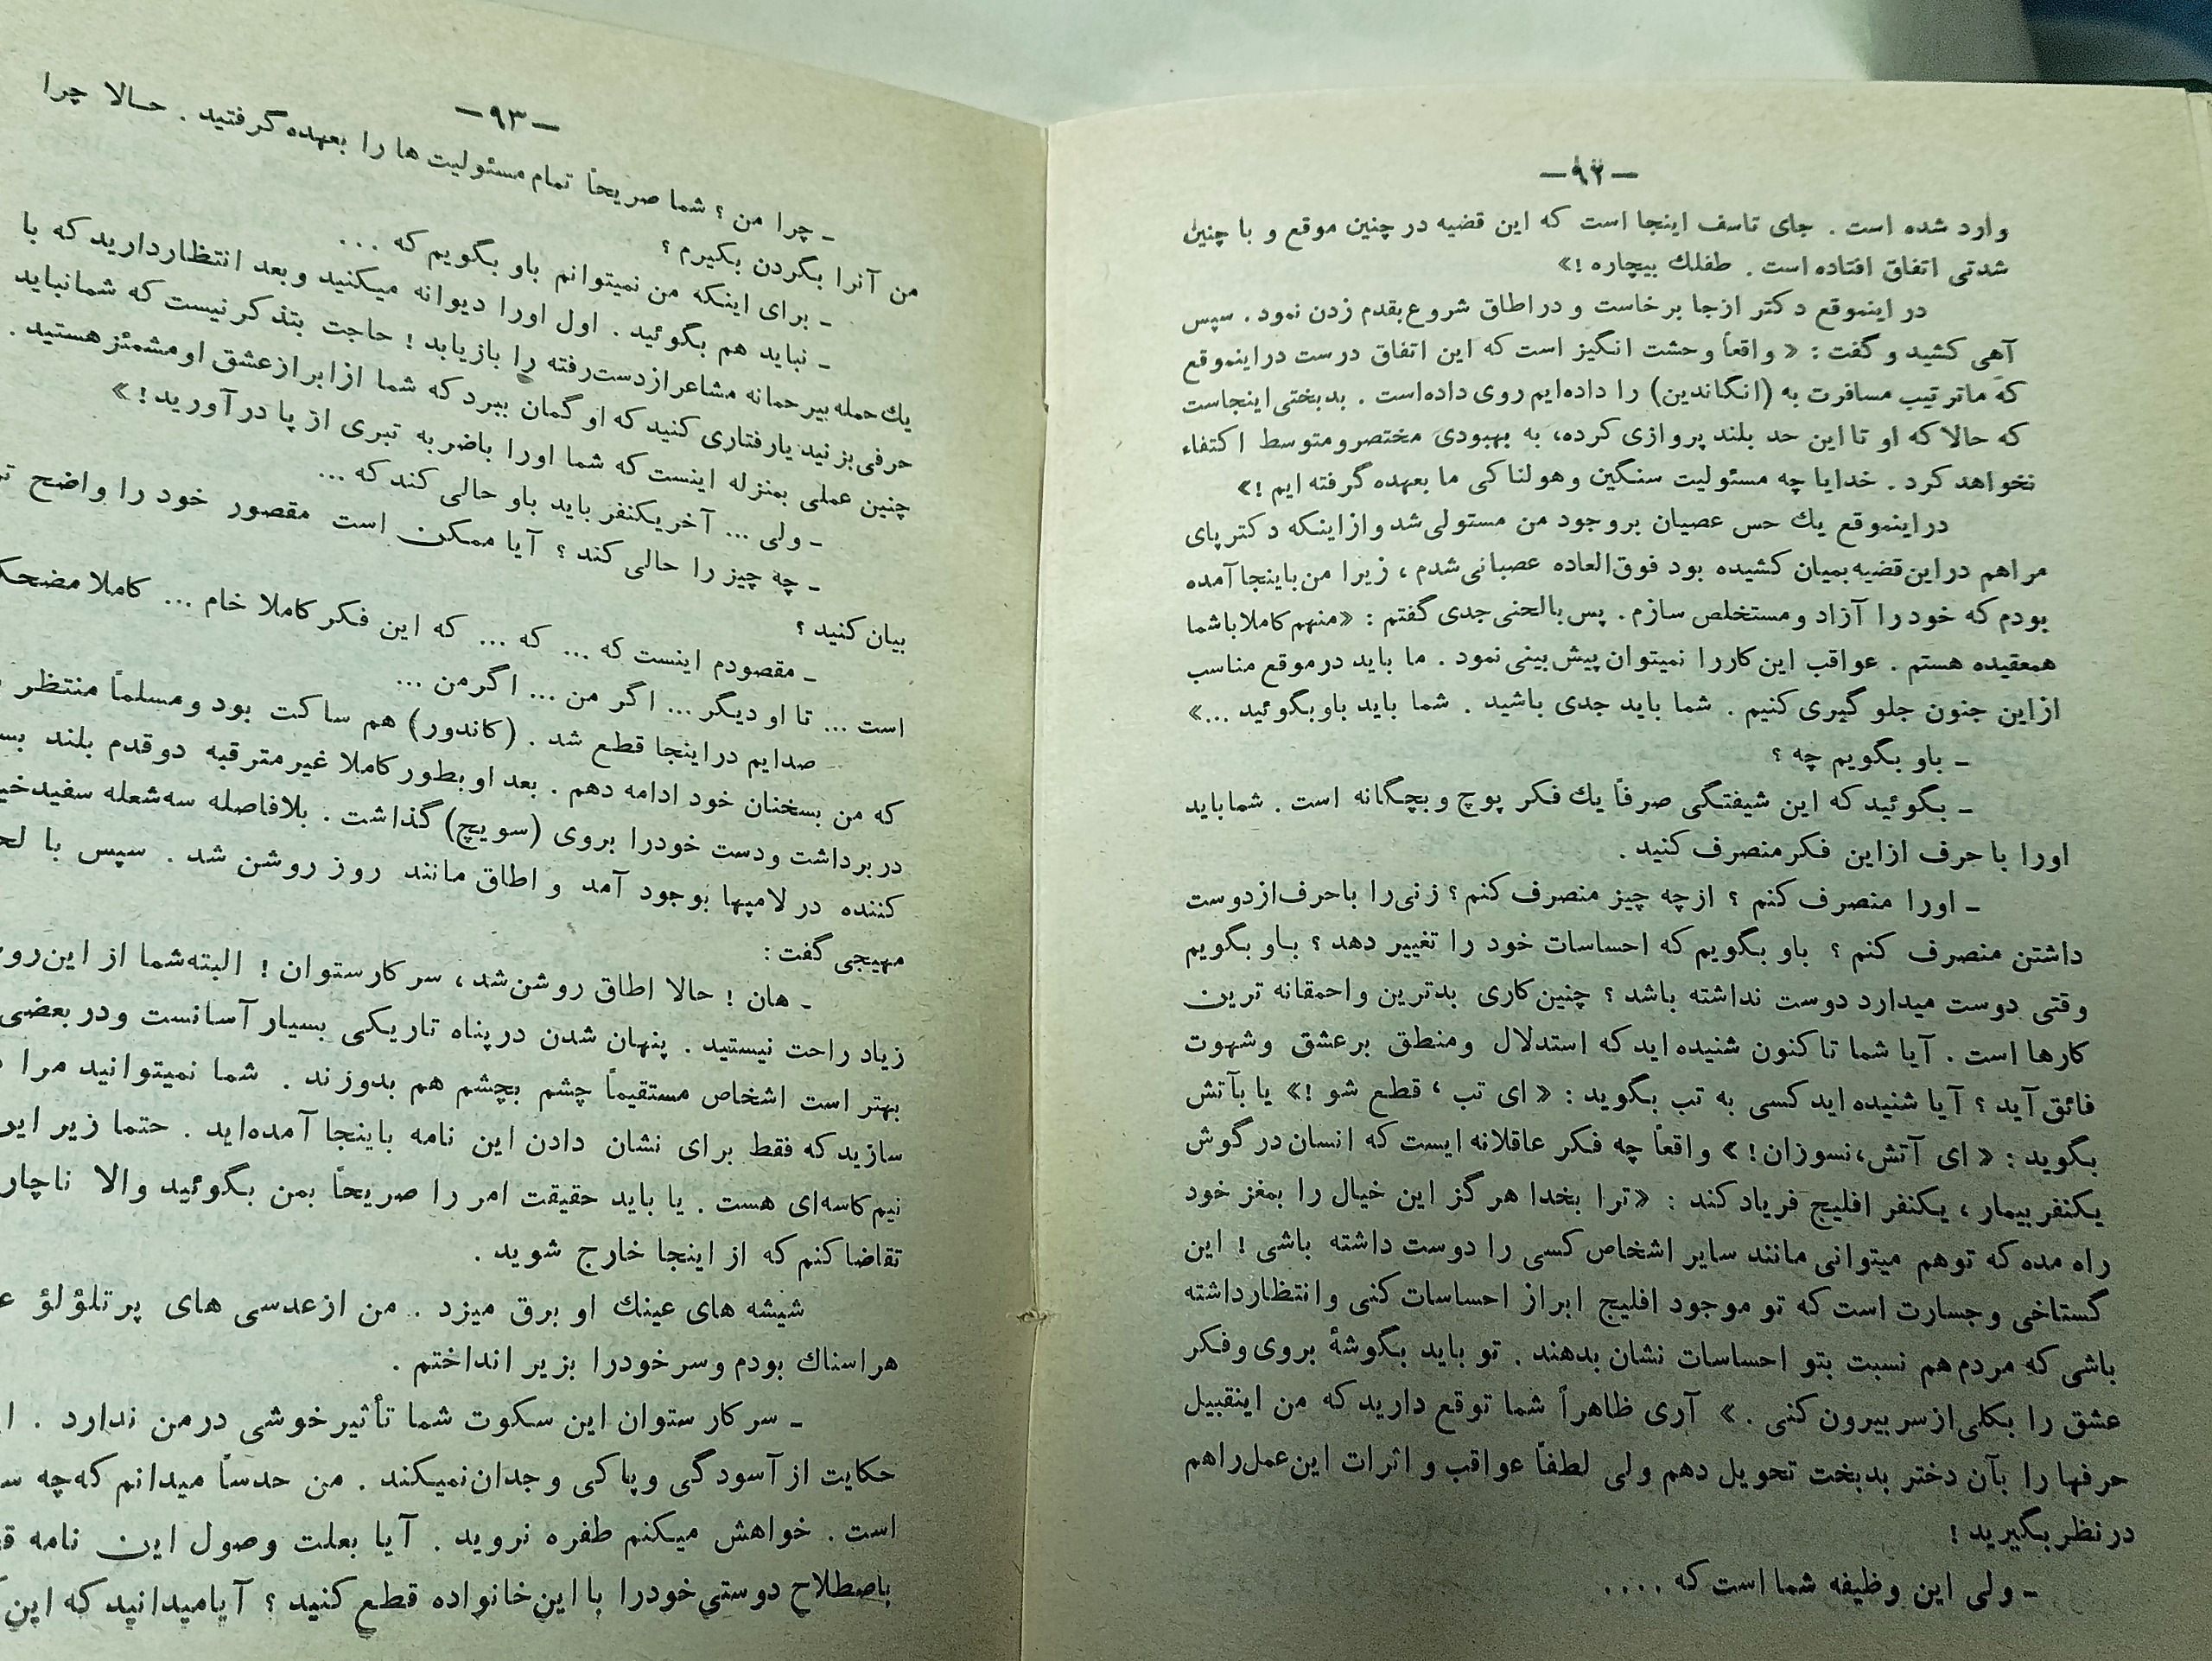 ـ ۹۲ ـ
وارد شده است . جای تاسف اینجا است که این قضیه در چنین موقع و با چنین
شدتی اتفاق افتاده است . طفلك بیچاره !»
در اینموقع دکتر ازجا برخاست و دراطاق شروع بقدم زدن نمود . سپس
آهی کشید و گفت : « واقعاً وحشت انگیز است که این اتفاق درست دراینموقع
که ماترتیب مسافرت به (انگاندین) را داده‌ایم روی داده‌است . بدبختی اینجاست
که حالا که او تا این حد بلند پروازی کرده، به بهبودی مختصرومتوسط اکتفاء
نخواهد کرد . خدایا چه مسئولیت سنگین وهولناکی ما بعهده گرفته ایم !»
دراینموقع یك حس عصیان بروجود من مستولی شد وازاینکه دکتر پای
مراهم دراین قضیه بمیان کشیده بود فوق‌العاده عصبانی شدم ، زیرا من باینجا آمده
بودم که خود را آزاد ومستخلص سازم . پس بالحنی جدی گفتم : «منهم کاملا باشما
همعقیده هستم . عواقب این کاررا نمیتوان پیش بینی نمود . ما باید درموقع مناسب
ازاین جنون جلوگیری کنیم . شما باید جدی باشید . شما باید باوبگوئید ...»
ـ باو بگویم چه ؟
ـ بگوئید که این شیفتگی صرفاً یك فکر پوچ وبچگانه است . شماباید
اورا باحرف ازاین فکرمنصرف کنید .
ـ اورا منصرف کنم ؟ ازچه چیز منصرف کنم؟ زنی‌را باحرف‌ازدوست
داشتن منصرف کنم ؟ باو بگویم که احساسات خود را تغییر دهد ؟ باو بگویم
وقتی دوست میدارد دوست نداشته باشد ؟ چنین‌کاری بدترین واحمقانه ترین
کارها است . آیا شما تاکنون شنیده اید که استدلال ومنطق برعشق وشهوت
فائق آید ؟ آیا شنیده اید کسی به تب بگوید : « ای تب ، قطع شو !» یا بآتش
بگوید : « ای آتش،نسوزان! » واقعاً چه فکر عاقلانه ایست که انسان درگوش
یکنفر بیمار ، یکنفر افلیج فریاد کند : «ترا بخدا هرگز این خیال را بمغز خود
راه مده که توهم میتوانی مانند سایر اشخاص کسی را دوست داشته باشی ! این
گستاخی وجسارت است که تو موجود افلیج ابراز احساسات کنی وانتظارداشته
باشی که مردم هم نسبت بتو احساسات نشان بدهند . تو باید بگوشهٔ بروی وفکر
عشق را بکلی ازسر بیرون کنی . » آری ظاهراً شما توقع دارید که من اینقبیل
حرفها را بآن دختر بدبخت تحویل دهم ولی لطفاً عواقب و اثرات این‌عمل‌راهم
درنظر بگیرید !
ـ ولی این وظیفه شما است که ....
ـ ۹۳ ـ
ـ چرا من ؟ شما صریحاً تمام مسئولیت ها را بعهده گرفتید . حالا چرا
من آنرا بگردن بگیرم ؟
ـ برای اینکه من نمیتوانم باو بگویم که ...
ـ نباید هم بگوئید . اول اورا دیوانه میکنید وبعد انتظاردارید که با
یك‌حمله بیرحمانه مشاعرازدست‌رفته را بازیابد ! حاجت بتذکرنیست که شمانباید
حرفی بزنید یارفتاری کنید که او گمان ببرد که شما ازابرازعشق اومشمئزهستید .
چنین عملی بمنزله اینست که شما اورا باضربه تبری از پا درآورید! »
ـ ولی ... آخر یکنفر باید باو حالی کند که ...
ـ چه چیز را حالی کند ؟ آیا ممکن است مقصور خود را واضح
بیان کنید ؟
ـ مقصودم اینست که ... که ... که این فکر کاملا خام ... کاملا
است ... تا او دیگر ... اگر من ... اگرمن ...
صدایم دراینجا قطع شد . (کاندور) هم ساکت بود ومسلماً منتظر
که من بسخنان خود ادامه دهم . بعد اوبطور کاملا غیرمترقبه دوقدم بلند
دربرداشت ودست خودرا بروی (سویچ) گذاشت . بلافاصله سه‌شعله سفید
کننده در لامپها بوجود آمد و اطاق مانند روز روشن شد . سپس با
مهیجی گفت :
ـ هان ! حالا اطاق روشن‌شد ، سرکارستوان ! البته‌شما از این
زیاد راحت نیستید . پنهان شدن درپناه تاریکی بسیار آسانست ودربعضی
بهتر است اشخاص مستقیماً چشم بچشم هم بدوزند . شما نمیتوانید مرا
سازید که فقط برای نشان دادن این نامه باینجا آمده‌اید . حتما زیر
نیم کاسه‌ای هست . یا باید حقیقت امر را صریحاً بمن بگوئید والا ناچار
تقاضا کنم که از اینجا خارج شوید .
شیشه های عینك او برق میزد . من ازعدسی های پرتلؤلؤ
هراسناك بودم وسرخودرا بزیر انداختم .
ـ سرکار ستوان این سکوت شما تأثیرخوشی درمن ندارد .
حکایت ازآسودگی وپاکی وجدان‌نمیکند . من حدساً میدانم که‌چه
است . خواهش میکنم طفره نروید . آیا بعلت وصول این نامه
باصطلاح دوستی‌خودرا بااین‌خانواده قطع کنید ؟ آیامیدانید که این